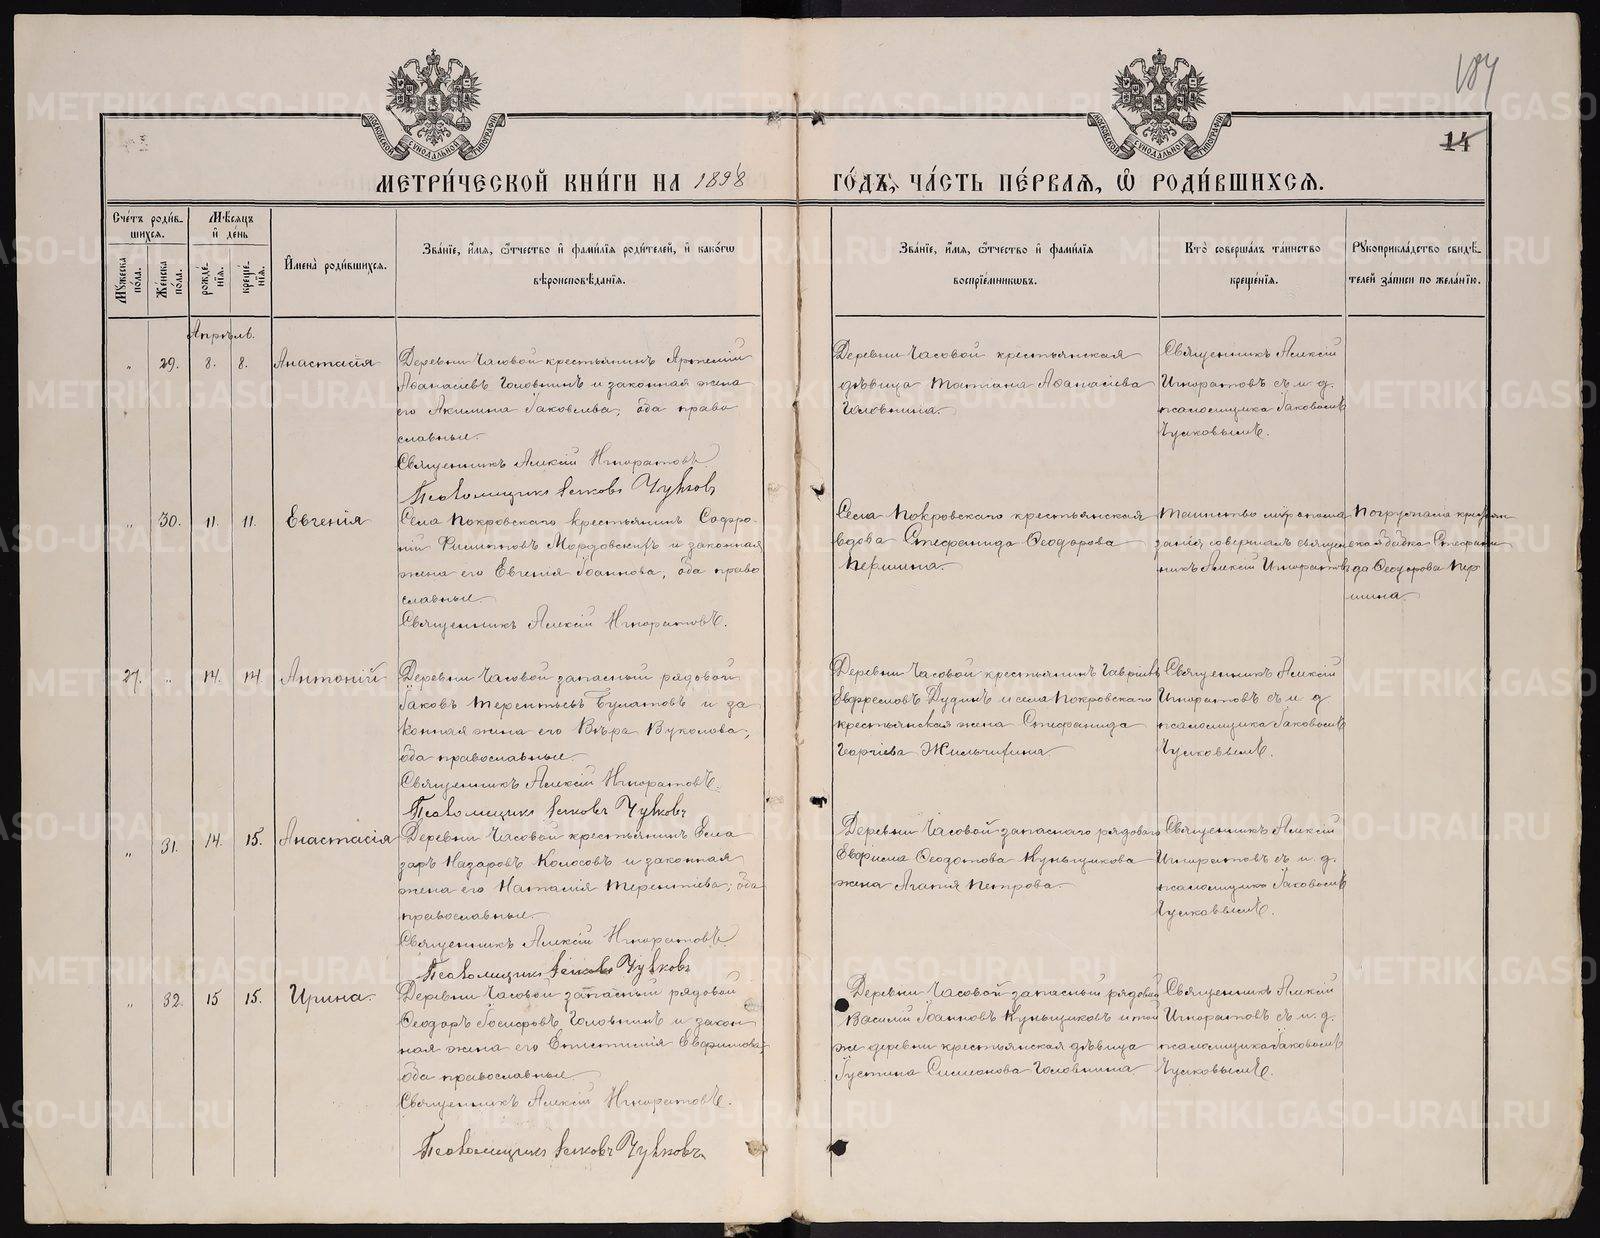 184
14
МОСКОВСКОЙ СѴНОДАЛЬНОЙ ТИПОГРАФІИ
МОСКОВСКОЙ СѴНОДАЛЬНОЙ ТИПОГРАФІИ
МЕТРИ́ЧЕСКОЙ КНИ́ГИ НА 1898 ГО́ДЪ, ЧА́СТЬ ПЕ́РВАѦ, Ѡ҆ РОДИ́ВШИХСѦ.
Сче́тъ роди́в-
шихся.
Мѣсяцъ
и҆ де́нь
Мꙋ́жеска
по́ла.
Же́нска
по́ла.
рожде́-
нїѧ.
креще́-
нїѧ.
И҆мена̀ роди́вшихся.
Зва́нїе, и҆́мѧ, ѻ҆́тчество и҆ фами́лїѧ роди́телей, и҆ како́гѡ
вѣроисповѣ́данїѧ.
Зва́нїе, и҆́мѧ, ѻ҆́тчество и҆ фами́лїѧ
воспрїе́мникѡвъ.
Кто̀ соверша́лъ та́инство
креще́нїѧ.
Рꙋкоприкла́дство свидѣ́-
телей за́писи по жела́нїю.
Апрѣль.
" 29. 8. 8. Анастасія
Деревни Часовой крестьянинъ Артемій
Аѳанасіевъ Головнинъ и законная жена
его Акилина Іаковлева, оба право
славные.
Священникъ Алексій Игноратовъ.
Псаломщикъ Іаковъ Чулковъ
Деревни Часовой крестьянская
дѣвица Татіана Аѳанасіева
Головнина.
Священникъ Алексій
Игноратовъ съ и. д.
псаломщика Іаковомъ
Чулковымъ.
" 30. 11. 11. Евгенія
Села Покровскаго крестьянинъ Софро-
ній Филипповъ Мордовскихъ и законная
жена его Евгенія Іоаннова, оба право
славные.
Священникъ Алексій Игноратовъ.
Села Покровскаго крестьянская
вдова Стефанида Ѳеодорова
Першина.
Таинство мѵропома
занія совершалъ священ
никъ Алексій Игноратовъ
Погружала крестьян
ская бабка Стефани
да Ѳеодорова Пер
шина.
27. " 14. 14. Антоній
Деревни Часовой запасный рядовой
Іаковъ Терентьевъ Булатовъ и за
конная жена его Вѣра Вуколова,
оба православные.
Священникъ Алексій Игноратовъ.
Псаломщикъ Іаковъ Чулковъ
Деревни Часовой крестьянинъ Гавріилъ
Евфремовъ Дудинъ и села Покровскаго
крестьянская жена Стефанида
Георгіева
Священникъ Алексій
Игноратовъ съ и. д
псаломщика Іаковомъ
Чулковымъ.
" 31. 14. 15. Анастасія
Деревни Часовой крестьянинъ Елеа
заръ Назаровъ Колосовъ и законная
жена его Наталія Терентіева; оба
православные.
Священникъ Алексій Игноратовъ.
Псаломщикъ Іаковъ Чулковъ
Деревни Часовой запаснаго рядоваго
Евфима Ѳеодотова Куньщикова
жена Агапія Петрова.
Священникъ Алексій
Игноратовъ съ и. д.
псаломщика Іаковомъ
Чулковымъ.
" 32. 15 15. Ирина.
Деревни Часовой запасный рядовой
Ѳеодоръ Іосифовъ Головнинъ и закон
ная жена его Епистимія Евфимова;
оба православные.
Священникъ Алексій Игноратовъ.
Псаломщикъ Іаковъ Чулковъ
Деревни Часовой запасный рядовой
Василій Іоанновъ Куньщиковъ и той
же деревни крестьянская дѣвица
Іустина Симеонова Головнина
Священникъ Алексій
Игноратовъ съ и. д.
псаломщика Іаковомъ
Чулковымъ.
METRIKI.GASO-URAL.RU